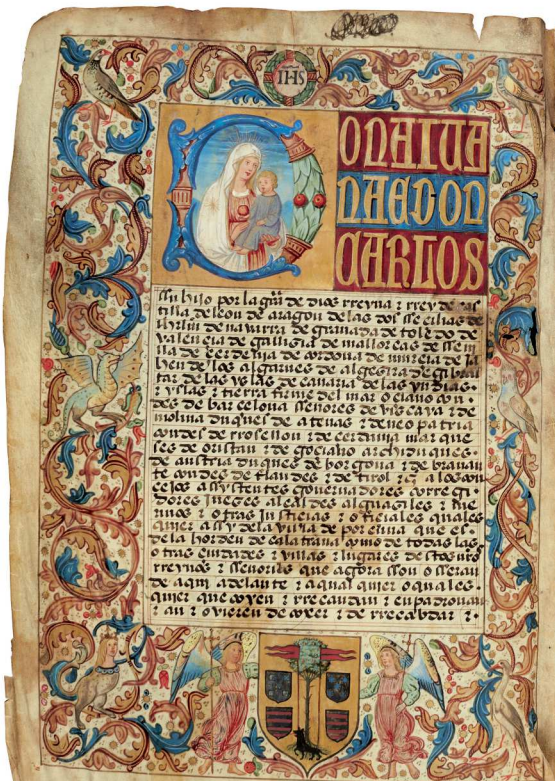 IHS
ONA IUA
NA E DON
CARLOS
Su hijo por la gra de dios rreyna z rrey de cas
tilla de leon de aragon de las dos secilias de
iherusalem de navarra de granada de toledo de
valencia de gallisia de mallorcas de sevi
lla de cerdenia de cordova de murcia de ja
hen de los algarves de algesira de gibral
tar de las yslas de canaria de las yndias
z yslas z tierra firme del mar oceano con
des de barcelona señores de viscaya z de
molina duques de atenas z de neopatria
condes de rrosellon z de cerdania marque
ses de oristan z de gociano archiduques
de austria duques de borgoña z de bravan
te condes de flandes z de tirol zc a los con
cejos assystentes governadores corregi
dores jueses alcaldes alguasiles z me
rinos z otras justicias z oficiales quales
quier assy de la villa de porcuna que es
de la horden de calatrava como de todas las
otras cibdades z villas z lugares destos nros
rreynos z señorios que agora son o seran
de aqui adelante z a qual quier o quales
quier que cojen z rrecaudan z enpadronan
z an z ovieren de cojer z de rrecabdar z